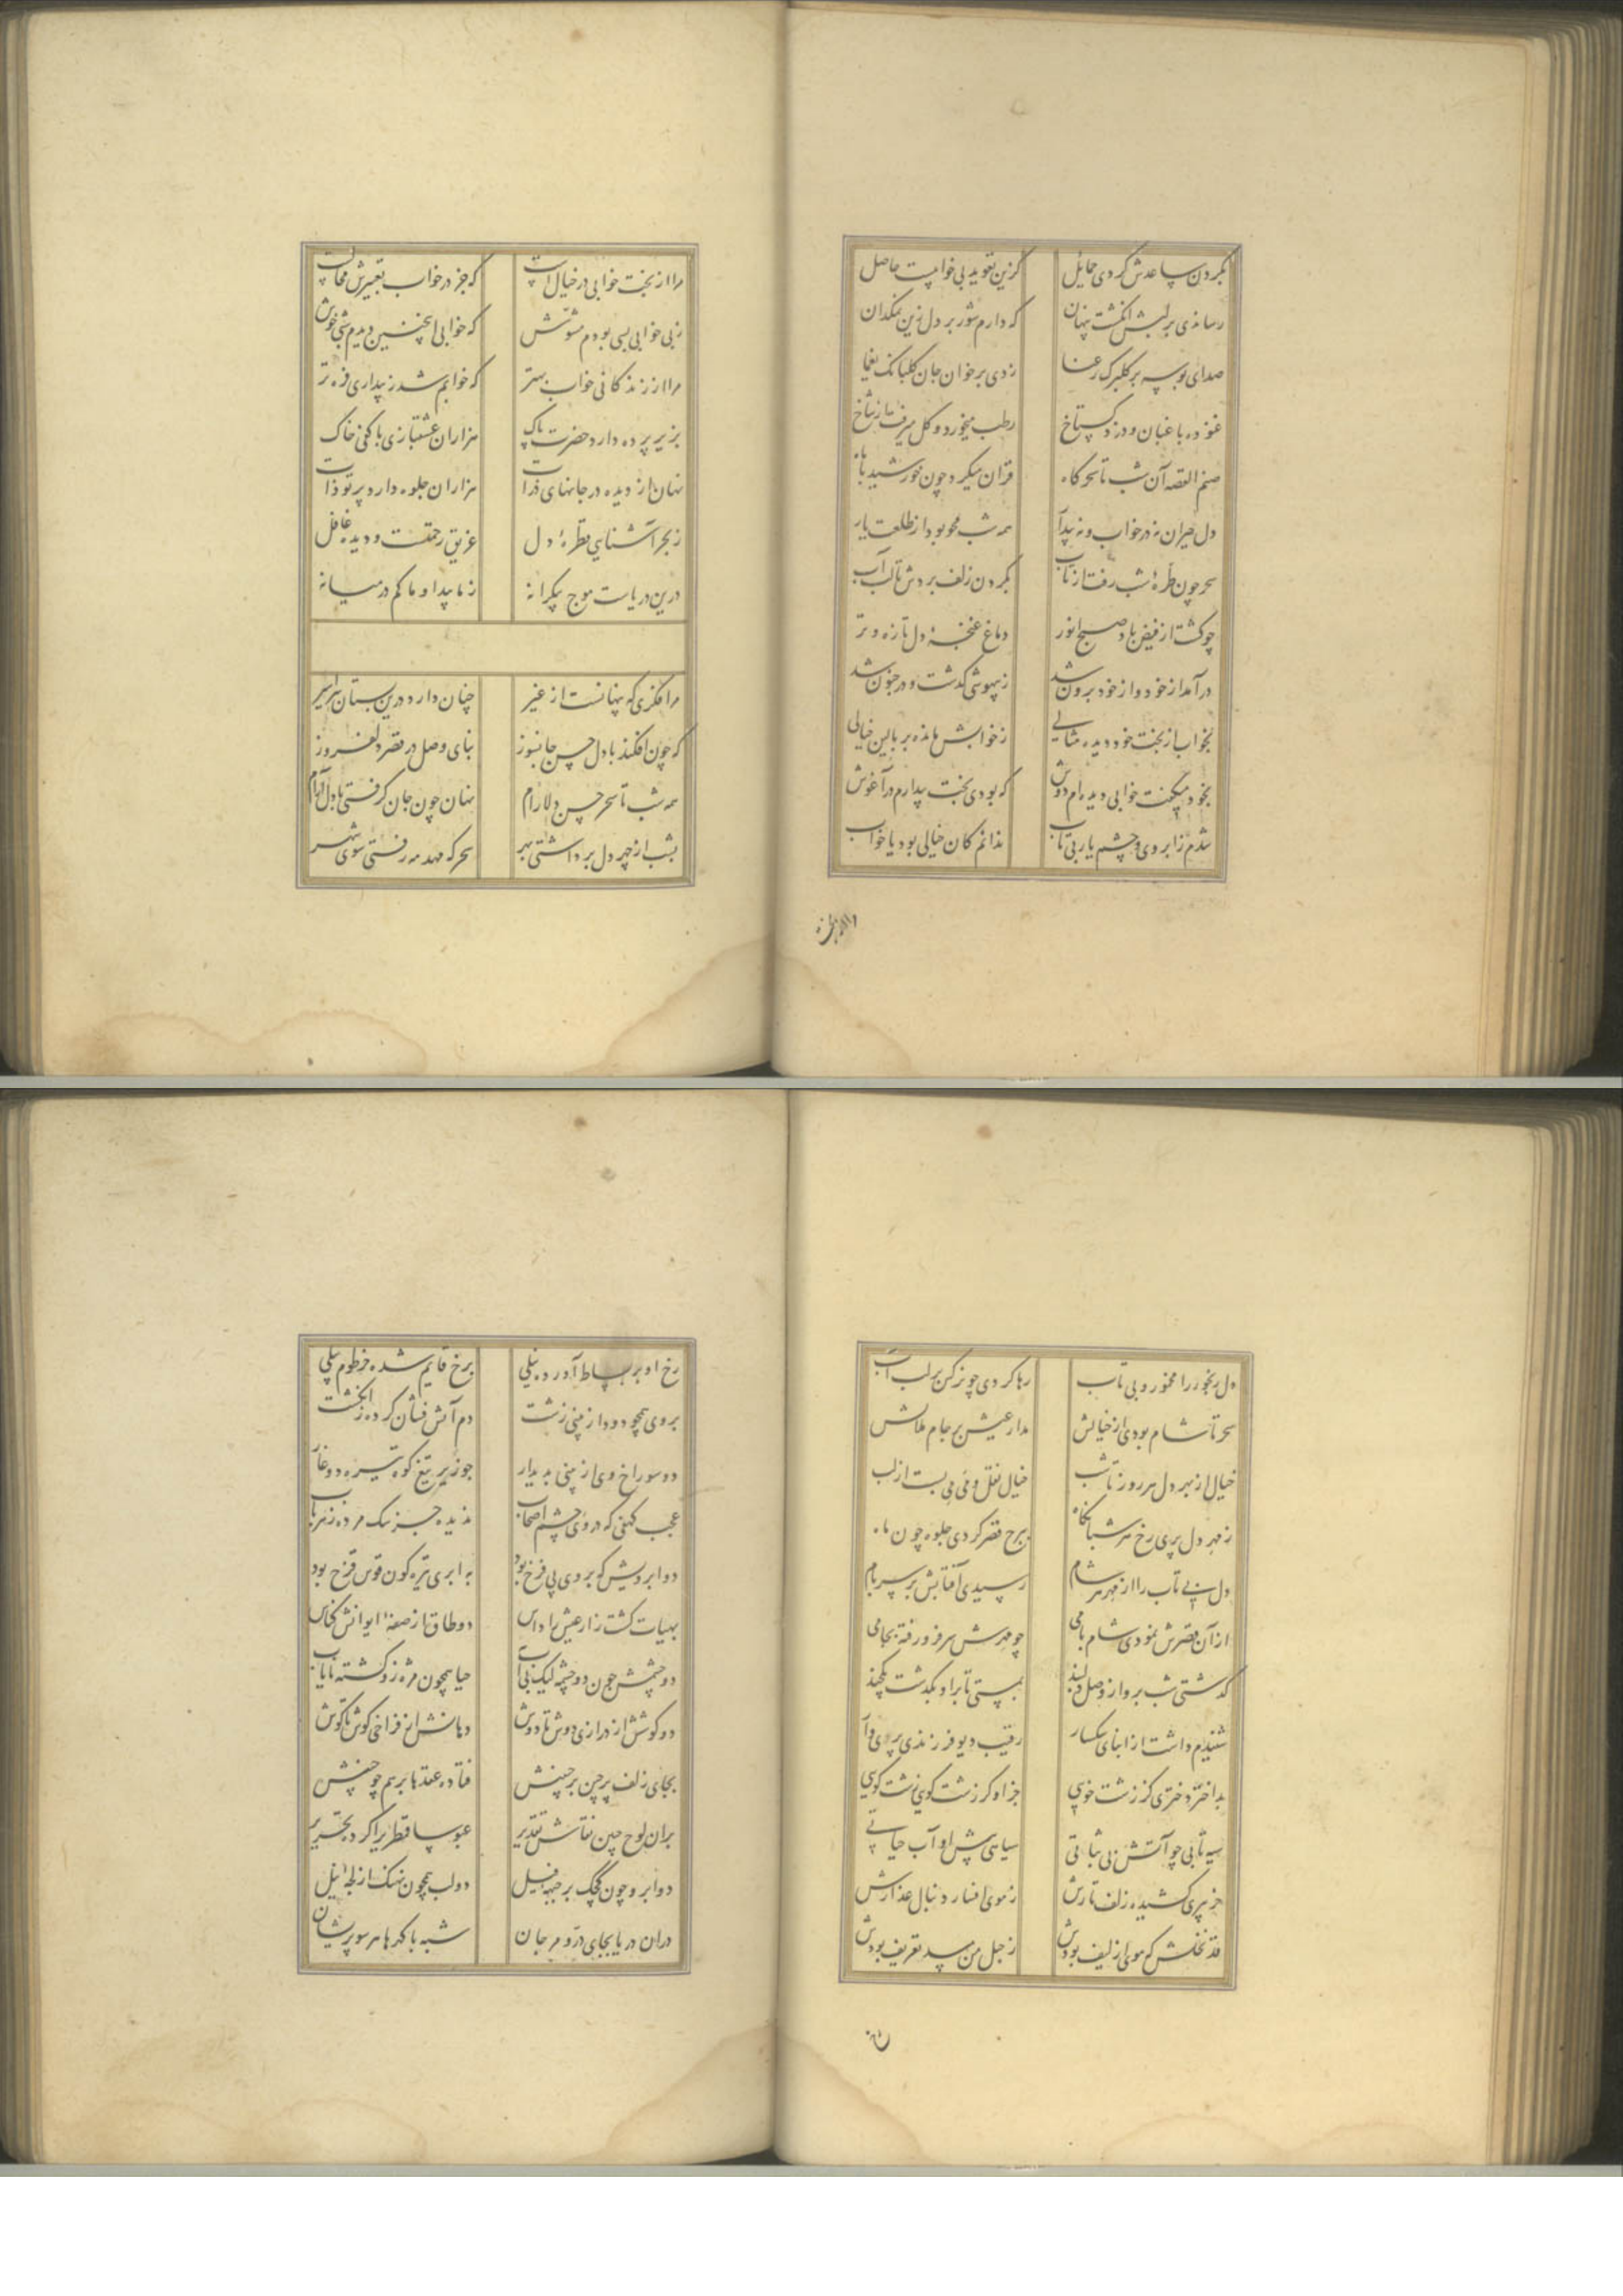 بگردن ساعدش کردی حمایل
کزین تعوید بی خوابیست حاصل
رساندی بر لبش انگشت پنهان
که دارم شور بر دل زین نمکدان
صدای بوسه بر گلبرک رعنا
زدی بر خوان جان گلبانک یغما
غنوده باغبان و دزد گستاخ
رطب میخورد و گل میرفت از شاخ
صنم القصه آن شب تا سحرگاه
قران میکرد چون خورشید با ماه
دل حیران نه در خواب و نه پیدا
همه شب محو بود از طلعت یار
سحر چون طرهٔ شب رفت از تاب
بگردن زلف بردش تا لب آب
چو گشت از فیض باد صبح انور
دماغ غنچهٔ دل تازه و تر
درآمد از خود و از خود برون شد
ز بیهوشی گذشت و در جنون شد
بخواب از بخت خود دیده مثالی
ز خوابش مانده بر بالین خیالی
بخود میگفت خوابی دیده‌ام دوش
که بودی بخت بیدارم در آغوش
شدم ز ابروی و چشم یار بی تاب
ندانم کان خیالی بود یا خواب
مرا از بخت خوابی در خیال است
که جز در خواب تعبیرش محالست
ز بی خوابی بسی بودم مشوش
که خوابی اینچنین دیدم شبی خوش
مرا از زندکانی خواب بهتر
که خوابم شد ز بیداری فزه تر
بزیر پرده دارد حضرت پاک
هزاران عشقبازی با کفی خاک
نهان از دیده در جانهای ذرات
هزاران جلوه دارد پرتو ذات
ز بحر آشنایی قطرهٔ دل
غریق رحمتست و دیده غافل
درین دریاست موج بیکرانه
ز ما پیدا و ما کم در میانه
مرا فکری که پنهانست از غیر
چنان دارد درین بستان سرا سیر
که چون افکند با دل حسن جانسوز
بنای وصل در قصر دلفروز
همه شب تا سحر حسن دلارام
نهان چون جان گرفتی با دل آرام
بشب از چهر دل برداشتی بهر
سحرگه مهد مه رفتی سوی شهر
دل رنجور را مخمور و بی تاب
رها کردی چو نرکس بر لب آب
سحر تا شام بودی از خیالش
مدار عیش بر جام ملالش
خیال از بهر دل هر روز تا شب
خیال نقل و می می بست از لب
ز مهر دل پری رخ هر شبانگاه
ببرج قصر کردی جلوه چون ماه
دل بی تاب را از مهر هر شام
رسیدی آفتابش بر سر بام
از آن قصرش نمودی شام بامی
چو مهرش سر فرو رفته بجامی
گذشتی شب برو از وصل دلبند
بمستی تا برو بگذشت یکچند
شنیدم داشت از ابنای سکسار
رقیب دیو فرزندی پریوار
بد اختر دختری کز زشت خویی
جز او کر زشت گویی زشت گویی
سیه تابی چو آتش بی ثباتی
سیاهی پیش او آب حیاتی
خر پیری کشیده زلف تارش
ز موی افسار دنبال عذارش
قد نخلش که موی از لیف بودش
ز حبل من مسد تعریف بودش
رخ او بر بساط آورده نیلی
برخ قایم شده خرطوم پیلی
بروی همچو دود از بینی زشت
دم آتش فشان کرده ز انگشت
دو سوراخ وی از بینی بدیدار
چو زیر تیغ کوه تیره دو غار
عجب کهفی که در وی چشم اصحاب
ندیده جز سک مرده ز هر باب
دو ابرویش که بر وی بی فرح بود
نه ابری تیره گون قوس قزح بود
بهیات کشت زار عیش را داس
دو طاق از صفهٔ ایوانش کناس
دو چشمش چون دو چشمه لیک بی آب
حیا همچون مژه زو گشته نایاب
دو گوشش از درازی دوش تا دوش
دهانش از فراخی گوش تا گوش
بجای زلف پرچین بر جبینش
فتاده عقدها بر هم چو چینش
بران لوح جبین نقاش تقدیر
عبوسا قمطریرا کرد تحریر
دو ابرو چون کجک بر جبههٔ فیل
دو لب همچون نهنک از لجهٔ نیل
دران دریا بجای در و مرجان
شبه با کدها هر سو پریشان